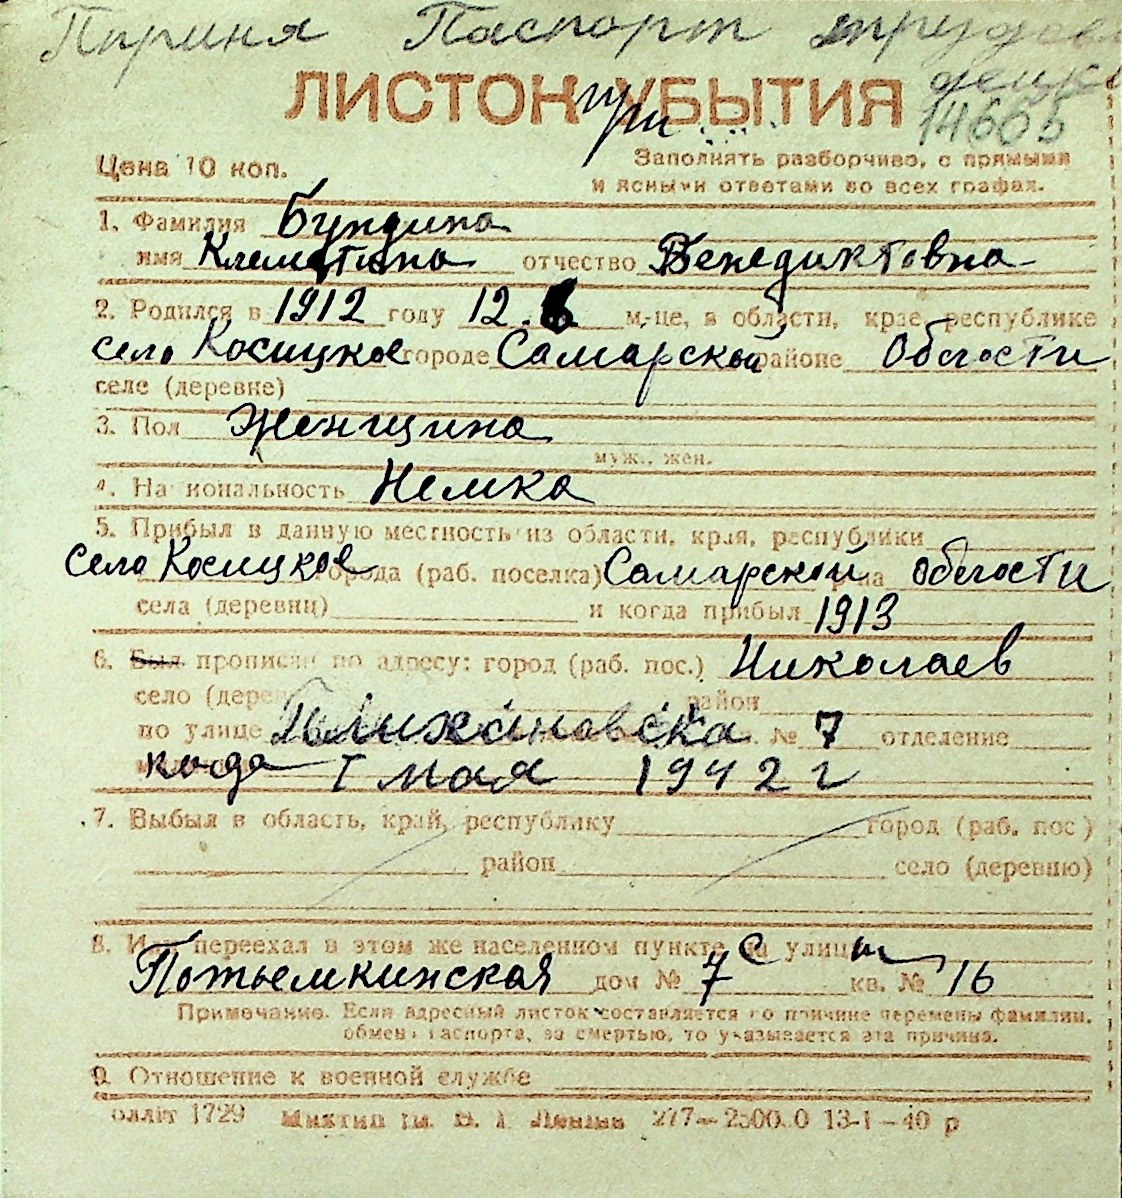 Паспорт
ЛИСТОК УБЫТИЯ
при
14605
Цена 10 коп.
Заполнять разборчиво, с прямыми
и ясными ответами во всех графах.
1. Фамилия Бундина
имя Клементина отчество Бенедиктовна
2. Родился в 1912 году 12. 6 м-це, в области, крае, республике
село Косицкое городе Самарской районе Области
селе (деревне)
3. Пол Женщина
муж., жен.
4. Национальность Немка
5. Прибыл в данную местность из области, края, республики
село Косицкое города (раб. поселка) Самарской р-на области
села (деревни) и когда прибыл 1913
6. Был прописан по адресу: город (раб. пос.) Николаев
село (дерев район
по улице № 7 отделение
когда I мая 1942 г
7. Выбыл в область, край, республику город (раб. пос)
район село (деревню)
8. Или переехал в этом же населенном пункте на улицу с
Потьемкинская дом № 7 кв. № 16
Примечание. Если адресный листок составляется по причине перемены фамилии,
обмена паспорта, за смертью, то указывается эта причина.
9. Отношение к военной службе
олліт 1729 им. В. І. Леніна 277—25000 13-1-40 р